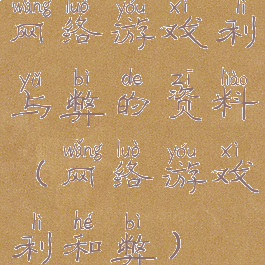 wǎng luò yóu xì lì
网络游戏利
yǔ bì de zī liào
与弊的资料
wǎng luò yóu xì
（网络游戏
lì hé bì
利和弊）